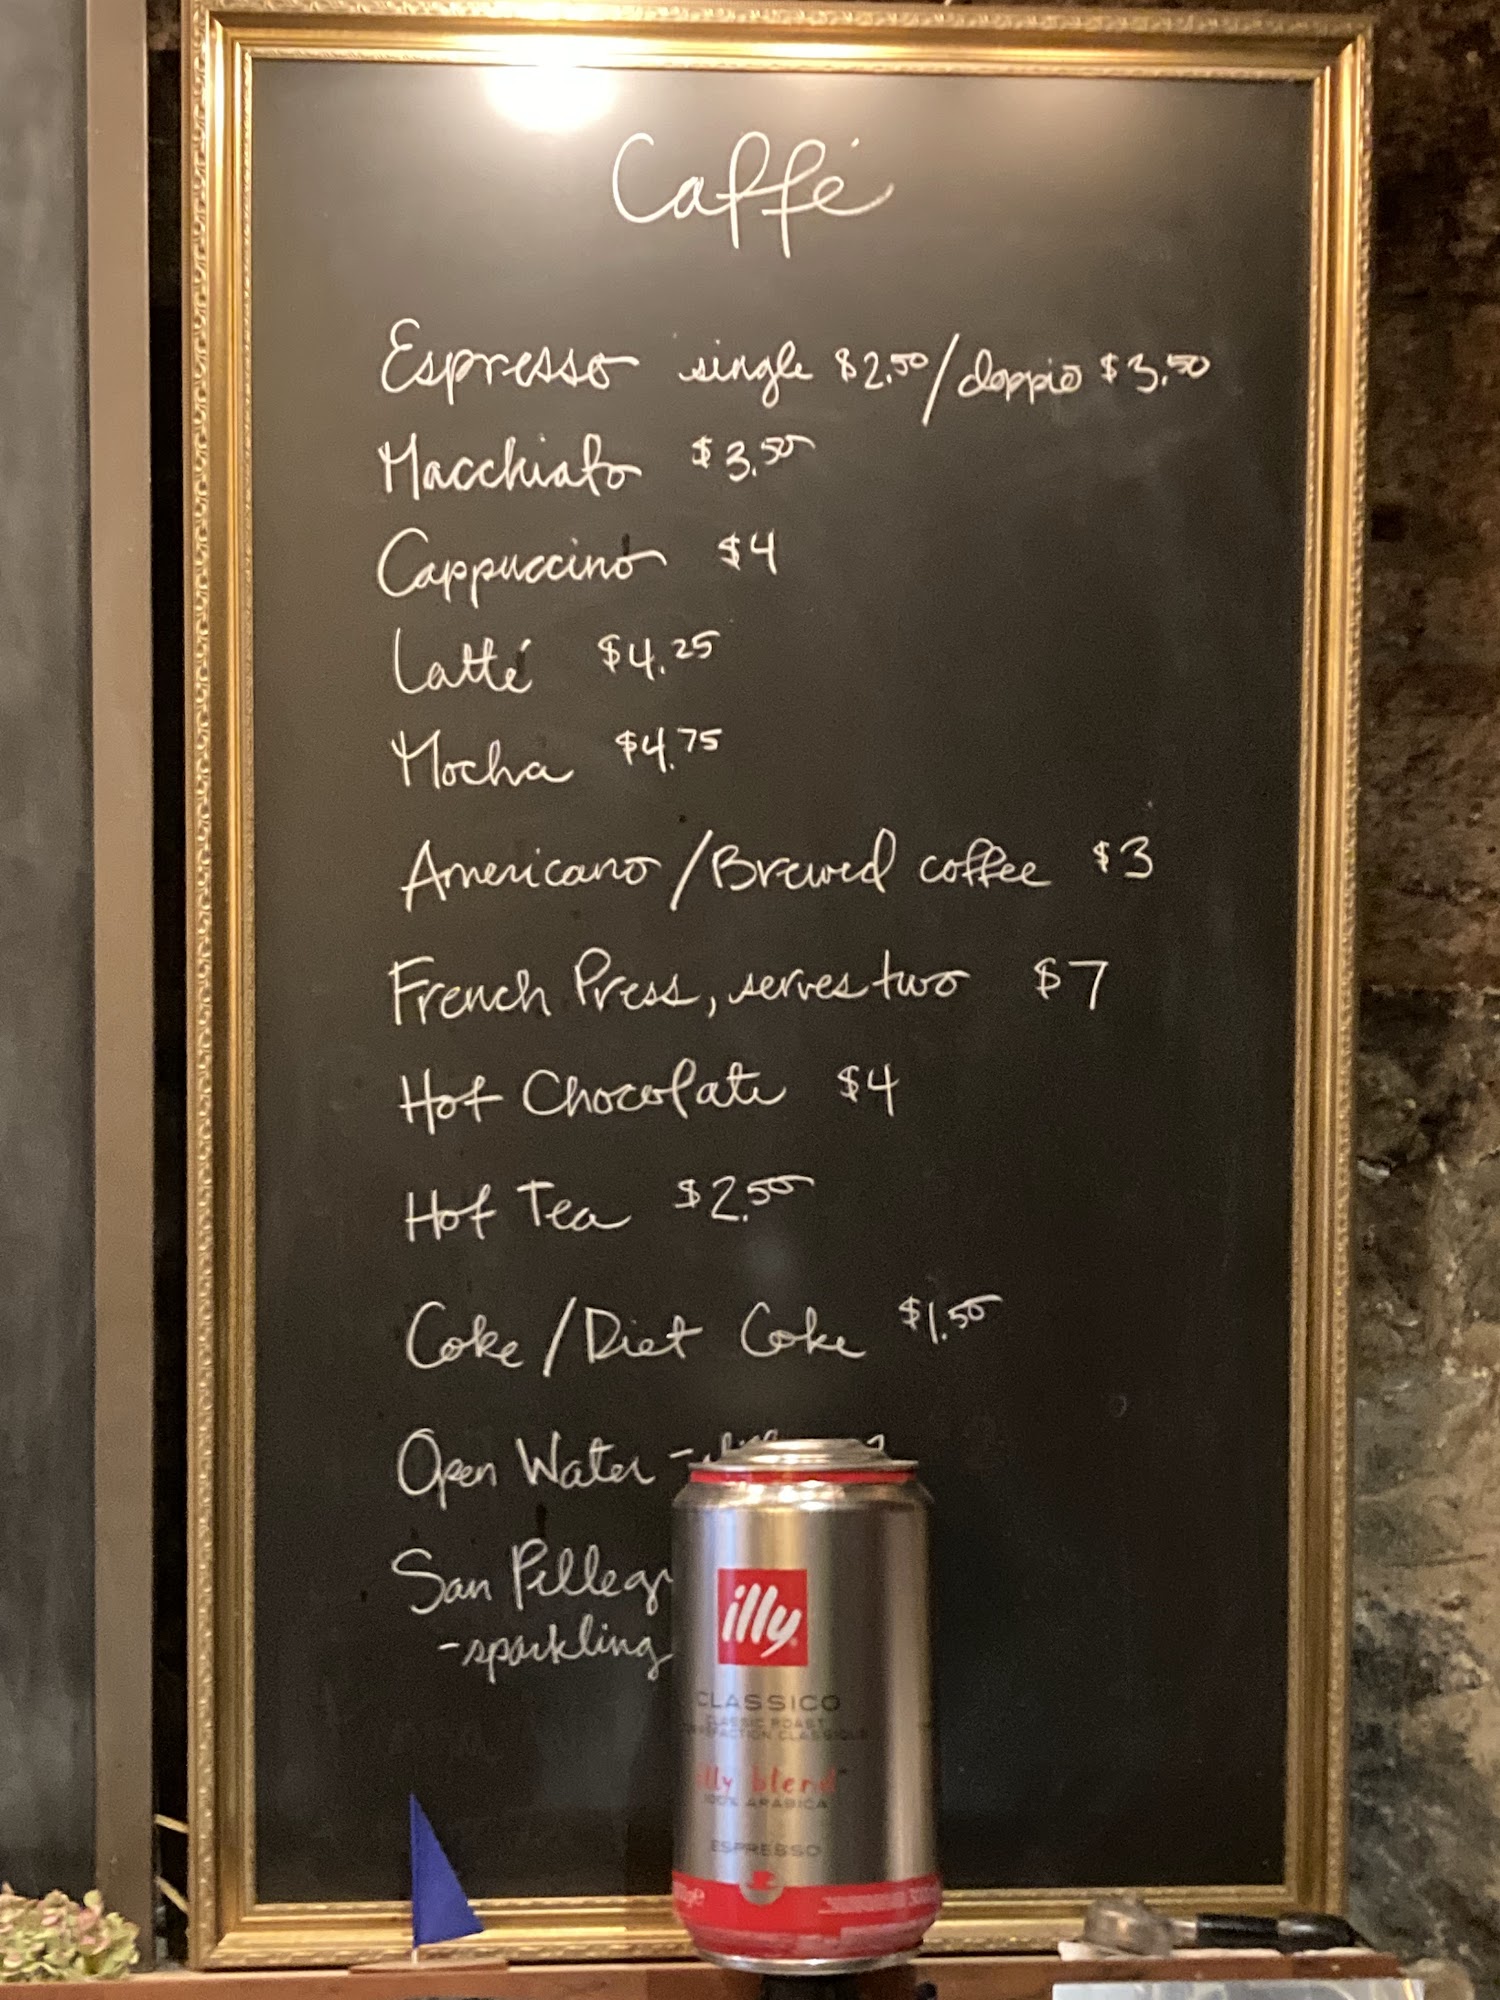 Caffé
Espresso single $2.50/doppio $3.50
Macchiato $3.50
Cappuccino $4
Latté $4.25
Mocha $4.75
Americano/Brewed coffee $3
French Press, serves two $7
Hot Chocolate $4
Hot Tea $2.50
Coke/Diet Coke $1.50
Open Water -
San Pellegr
-sparkling
illy
CLASSICO
CLASSIC ROAST
illy blend
100% ARABICA
ESPRESSO